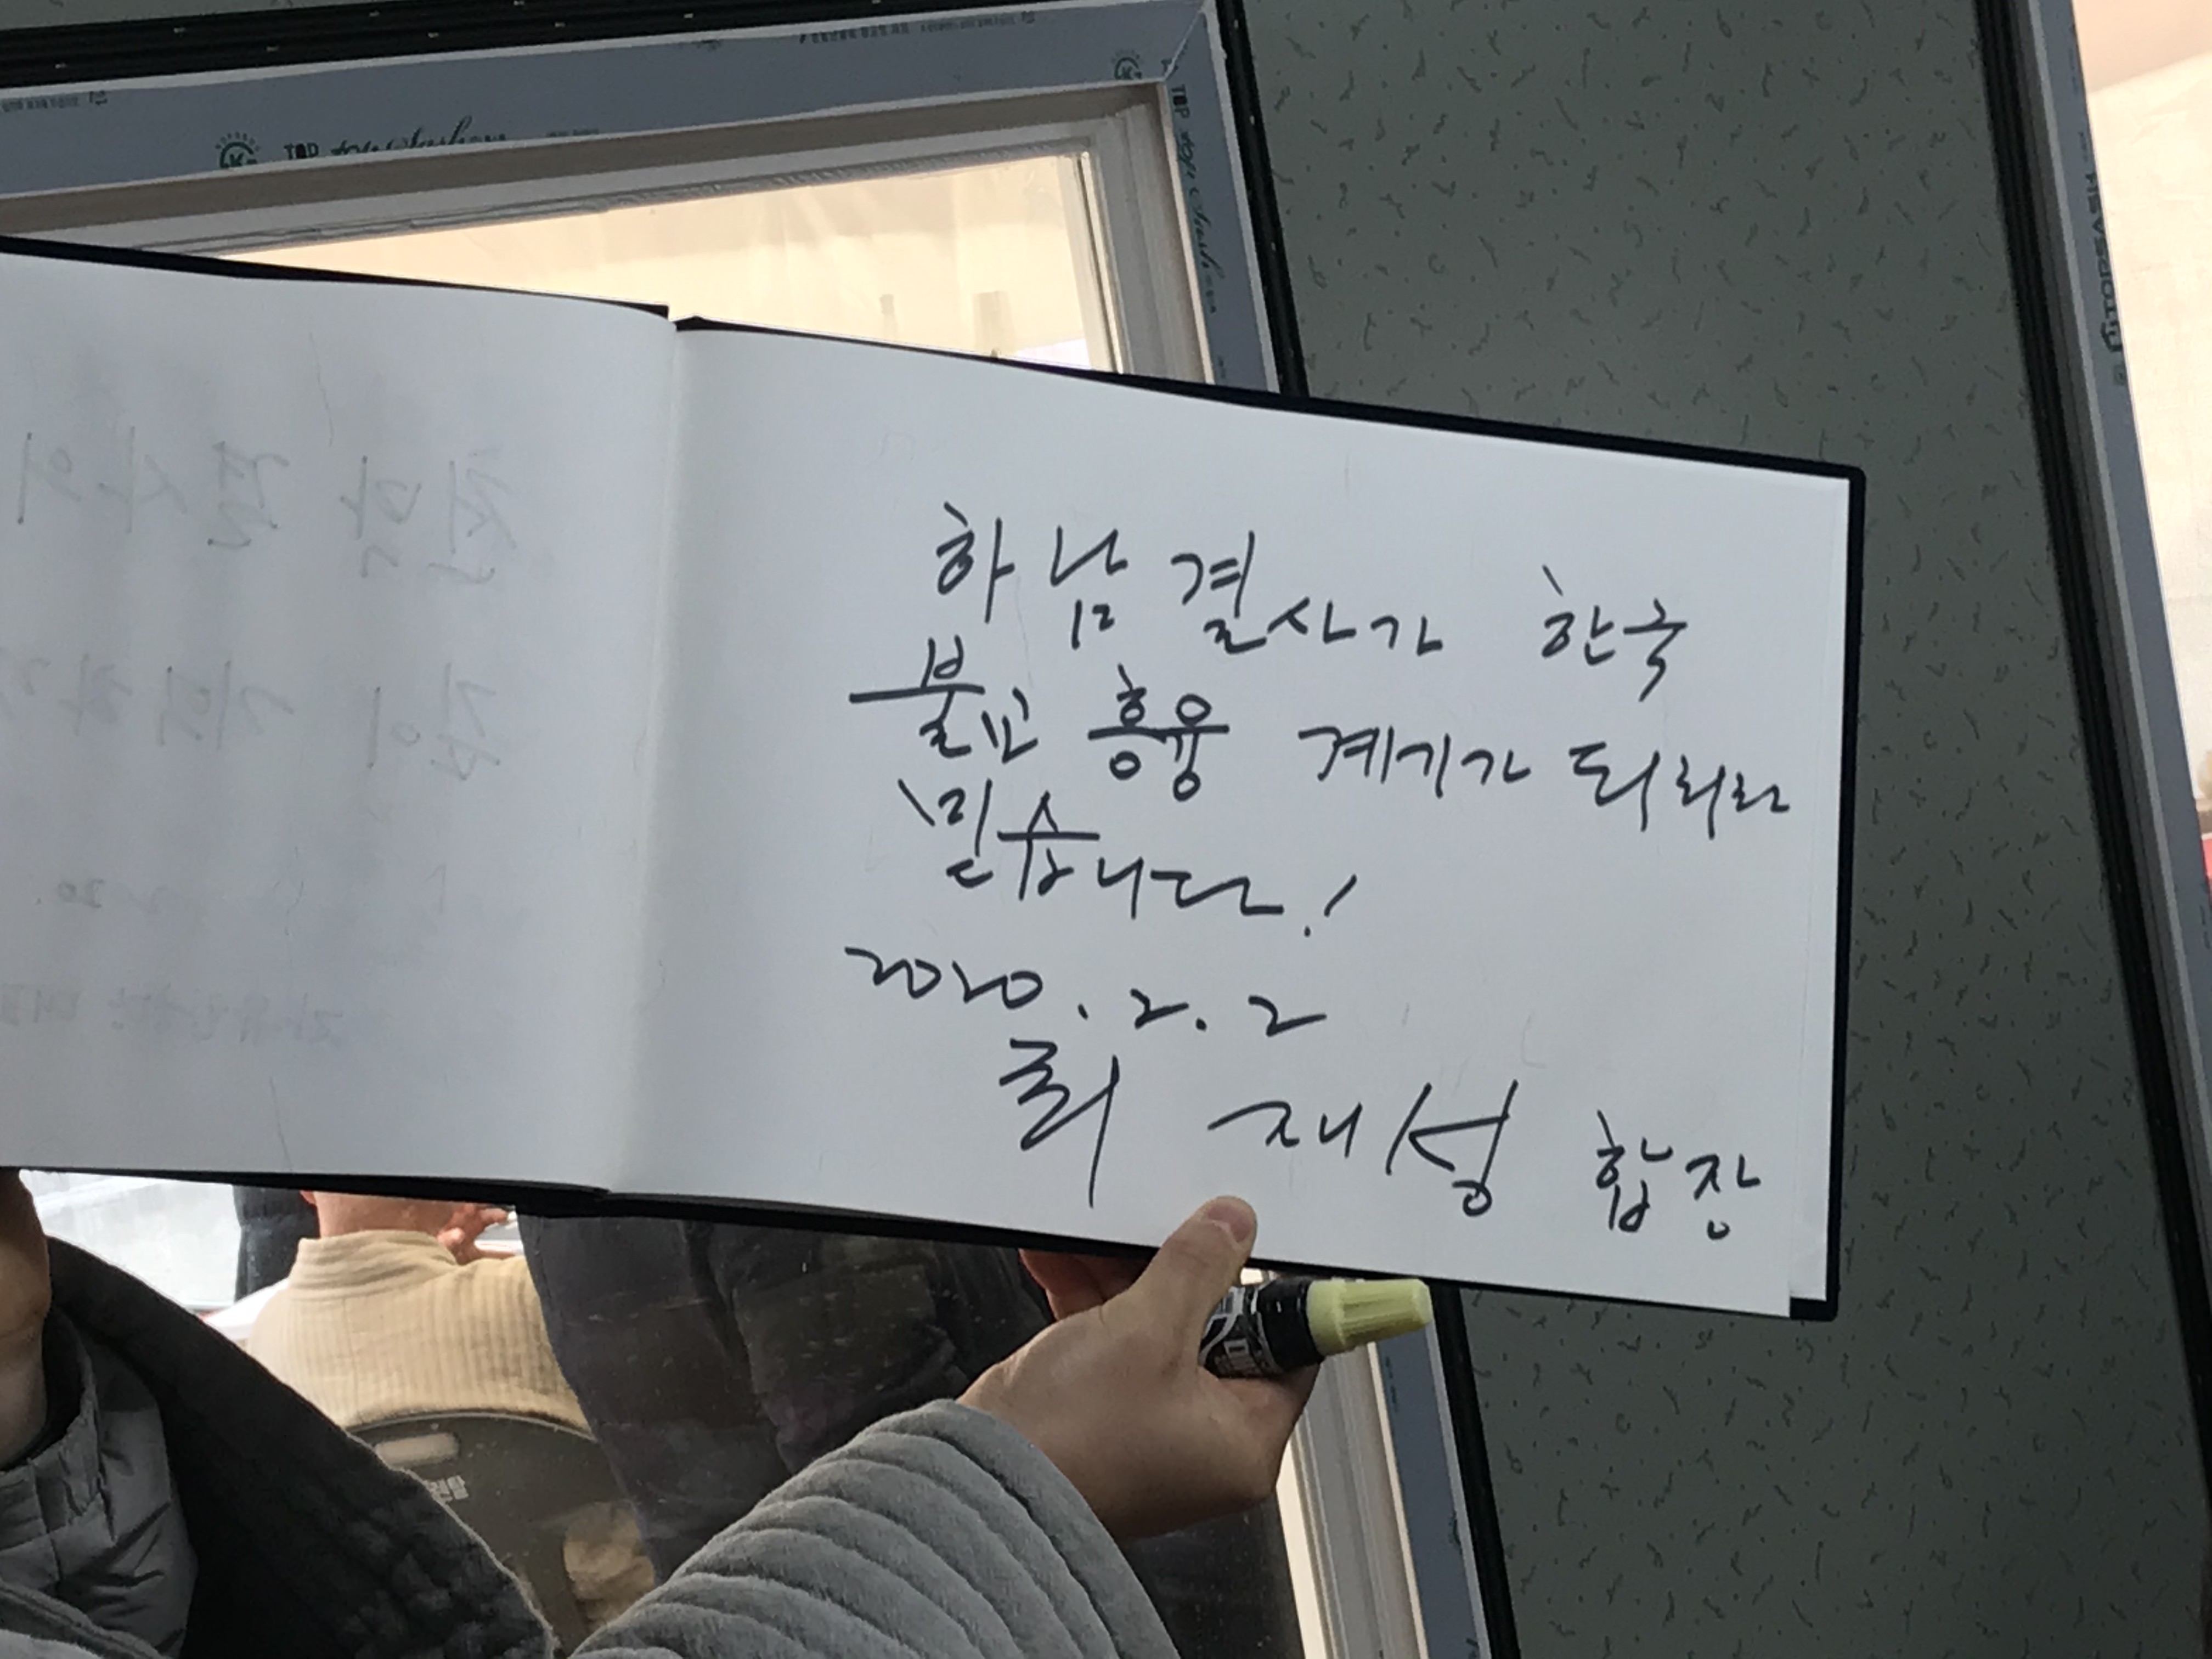 TOP
TOP
하남결사가 한국
불교 흥융 계기가 되리라
믿습니다!
2020. 2. 2
최 재성 합장